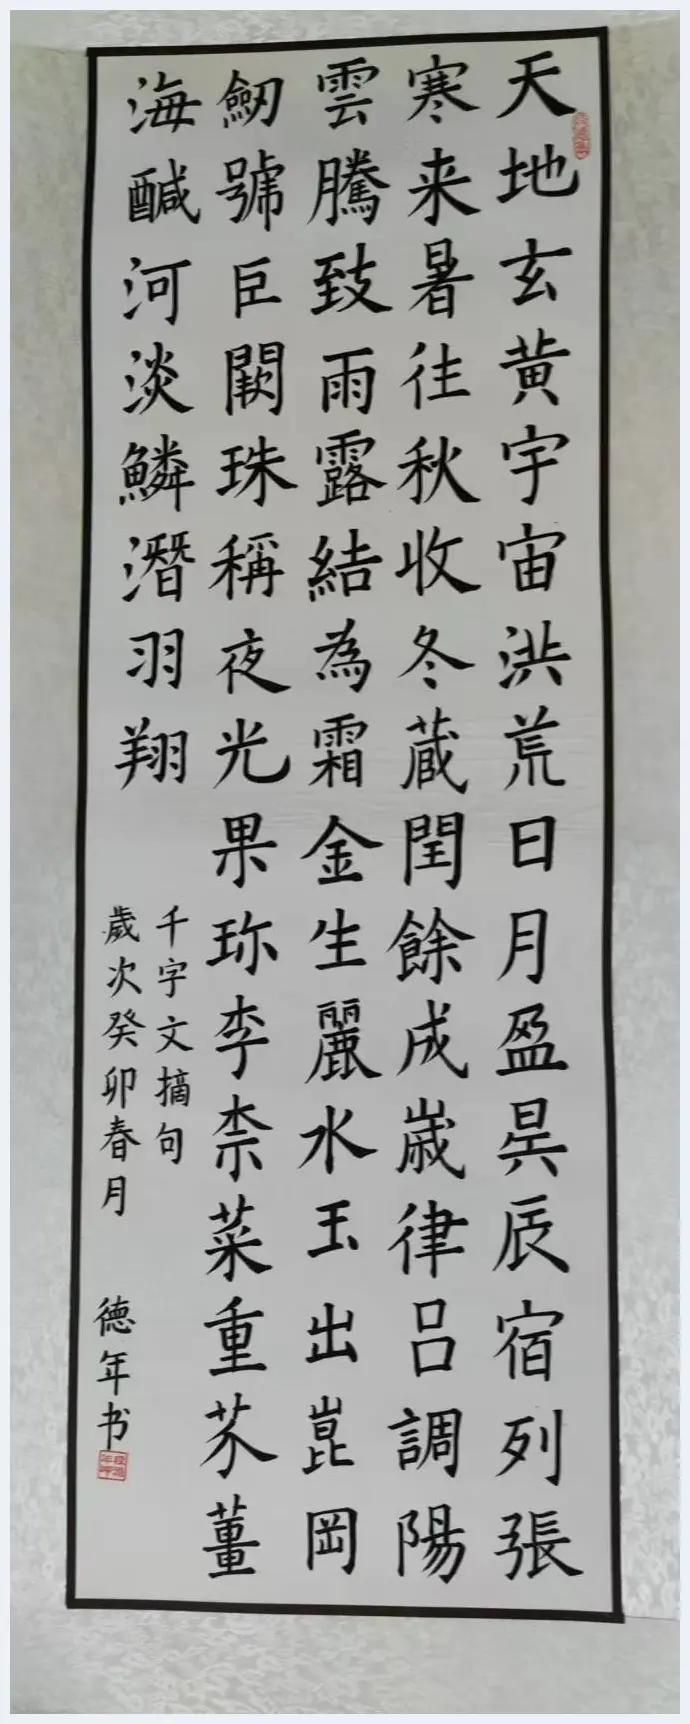 天地玄黄宇宙洪荒日月盈昃辰宿列張
寒来暑往秋收冬蔵閏餘成歲律吕調陽
雲騰致雨露結為霜金生麗水玉出崑岡
劒號巨闕珠稱夜光果珎李柰菜重芥薑
海醎河淡鱗潛羽翔
千字文摘句
歲次癸卯春月
德年书